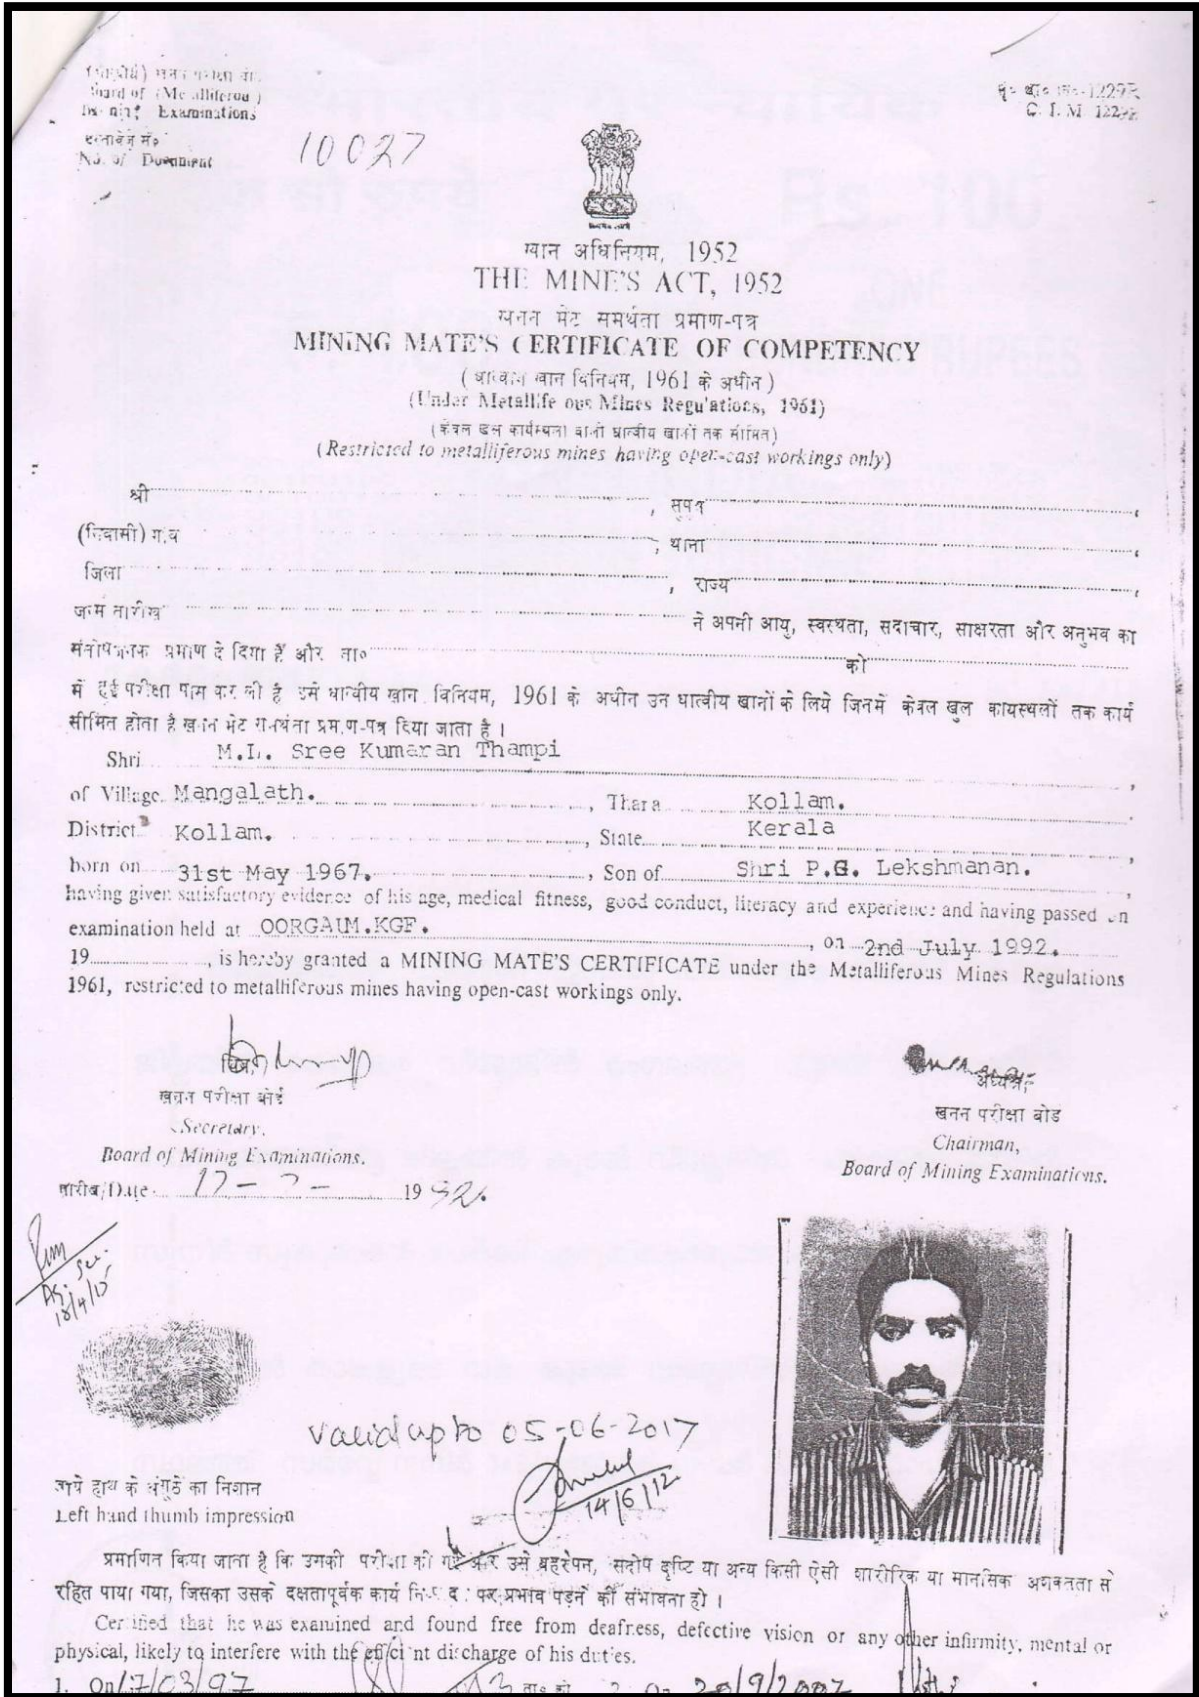 खनन परीक्षा
Board of (Metalliferous)
Examinations
No. of Document 10027
C. I. M. 1229
खान अधिनियम, 1952
THE MINE'S ACT, 1952
खनन मेट समर्थता प्रमाण-पत्र
MINING MATE'S CERTIFICATE OF COMPETENCY
( धात्वीय खान विनियम, 1961 के अधीन )
(Under Metalliferous Mines Regulations, 1961)
(केवल खुल कार्यस्थलों वाली धात्वीय खानों तक सीमित)
(Restricted to metalliferous mines having open-cast workings only)
श्री , सुपुत्र ,
(निवासी) गांव , थाना ,
जिला , राज्य ,
जन्म तारीख ने अपनी आयु, स्वस्थता, सदाचार, साक्षरता और अनुभव का
संतोषजनक प्रमाण दे दिया है और ता० को
में हुई परीक्षा पास कर ली है उसे धात्वीय खान विनियम, 1961 के अधीन उन धात्वीय खानों के लिये जिनमें केवल खुल कायस्थलों तक कार्य
सीमित होता है खनन मेट प्रमाण-पत्र दिया जाता है ।
Shri M.L. Sree Kumaran Thampi ,
of Village Mangalath. , Thara Kollam.
District Kollam. , State Kerala ,
born on 31st May 1967. , Son of Shri P.G. Lekshmanan. ,
having given satisfactory evidence of his age, medical fitness, good conduct, literacy and experience and having passed an
examination held at OORGAUM.KGF. , on 2nd July 1992.
19 , is hereby granted a MINING MATE'S CERTIFICATE under the Metalliferous Mines Regulations
1961, restricted to metalliferous mines having open-cast workings only.
अध्यक्ष,
खनन परीक्षा बोर्ड
खनन परीक्षा बोर्ड
Secretary,
Chairman,
Board of Mining Examinations.
Board of Mining Examinations.
तारीख/Date 17-7- 1992.
18/4/15
valid upto 05-06-2017
14/6/12
बाये हाथ के अंगूठे का निशान
Left hand thumb impression
प्रमाणित किया जाता है कि उसकी परीक्षा की गई और उसे बहरेपन, सदोष दृष्टि या अन्य किसी ऐसी शारीरिक या मानसिक अशक्तता से
रहित पाया गया, जिसका उसके दक्षतापूर्वक कार्य पर प्रभाव पड़ने की संभावना हो ।
Certified that he was examined and found free from deafness, defective vision or any other infirmity, mental or
physical, likely to interfere with the efficient discharge of his duties.
1. On 17/03/97 ता० को 2. On 20/9/2007